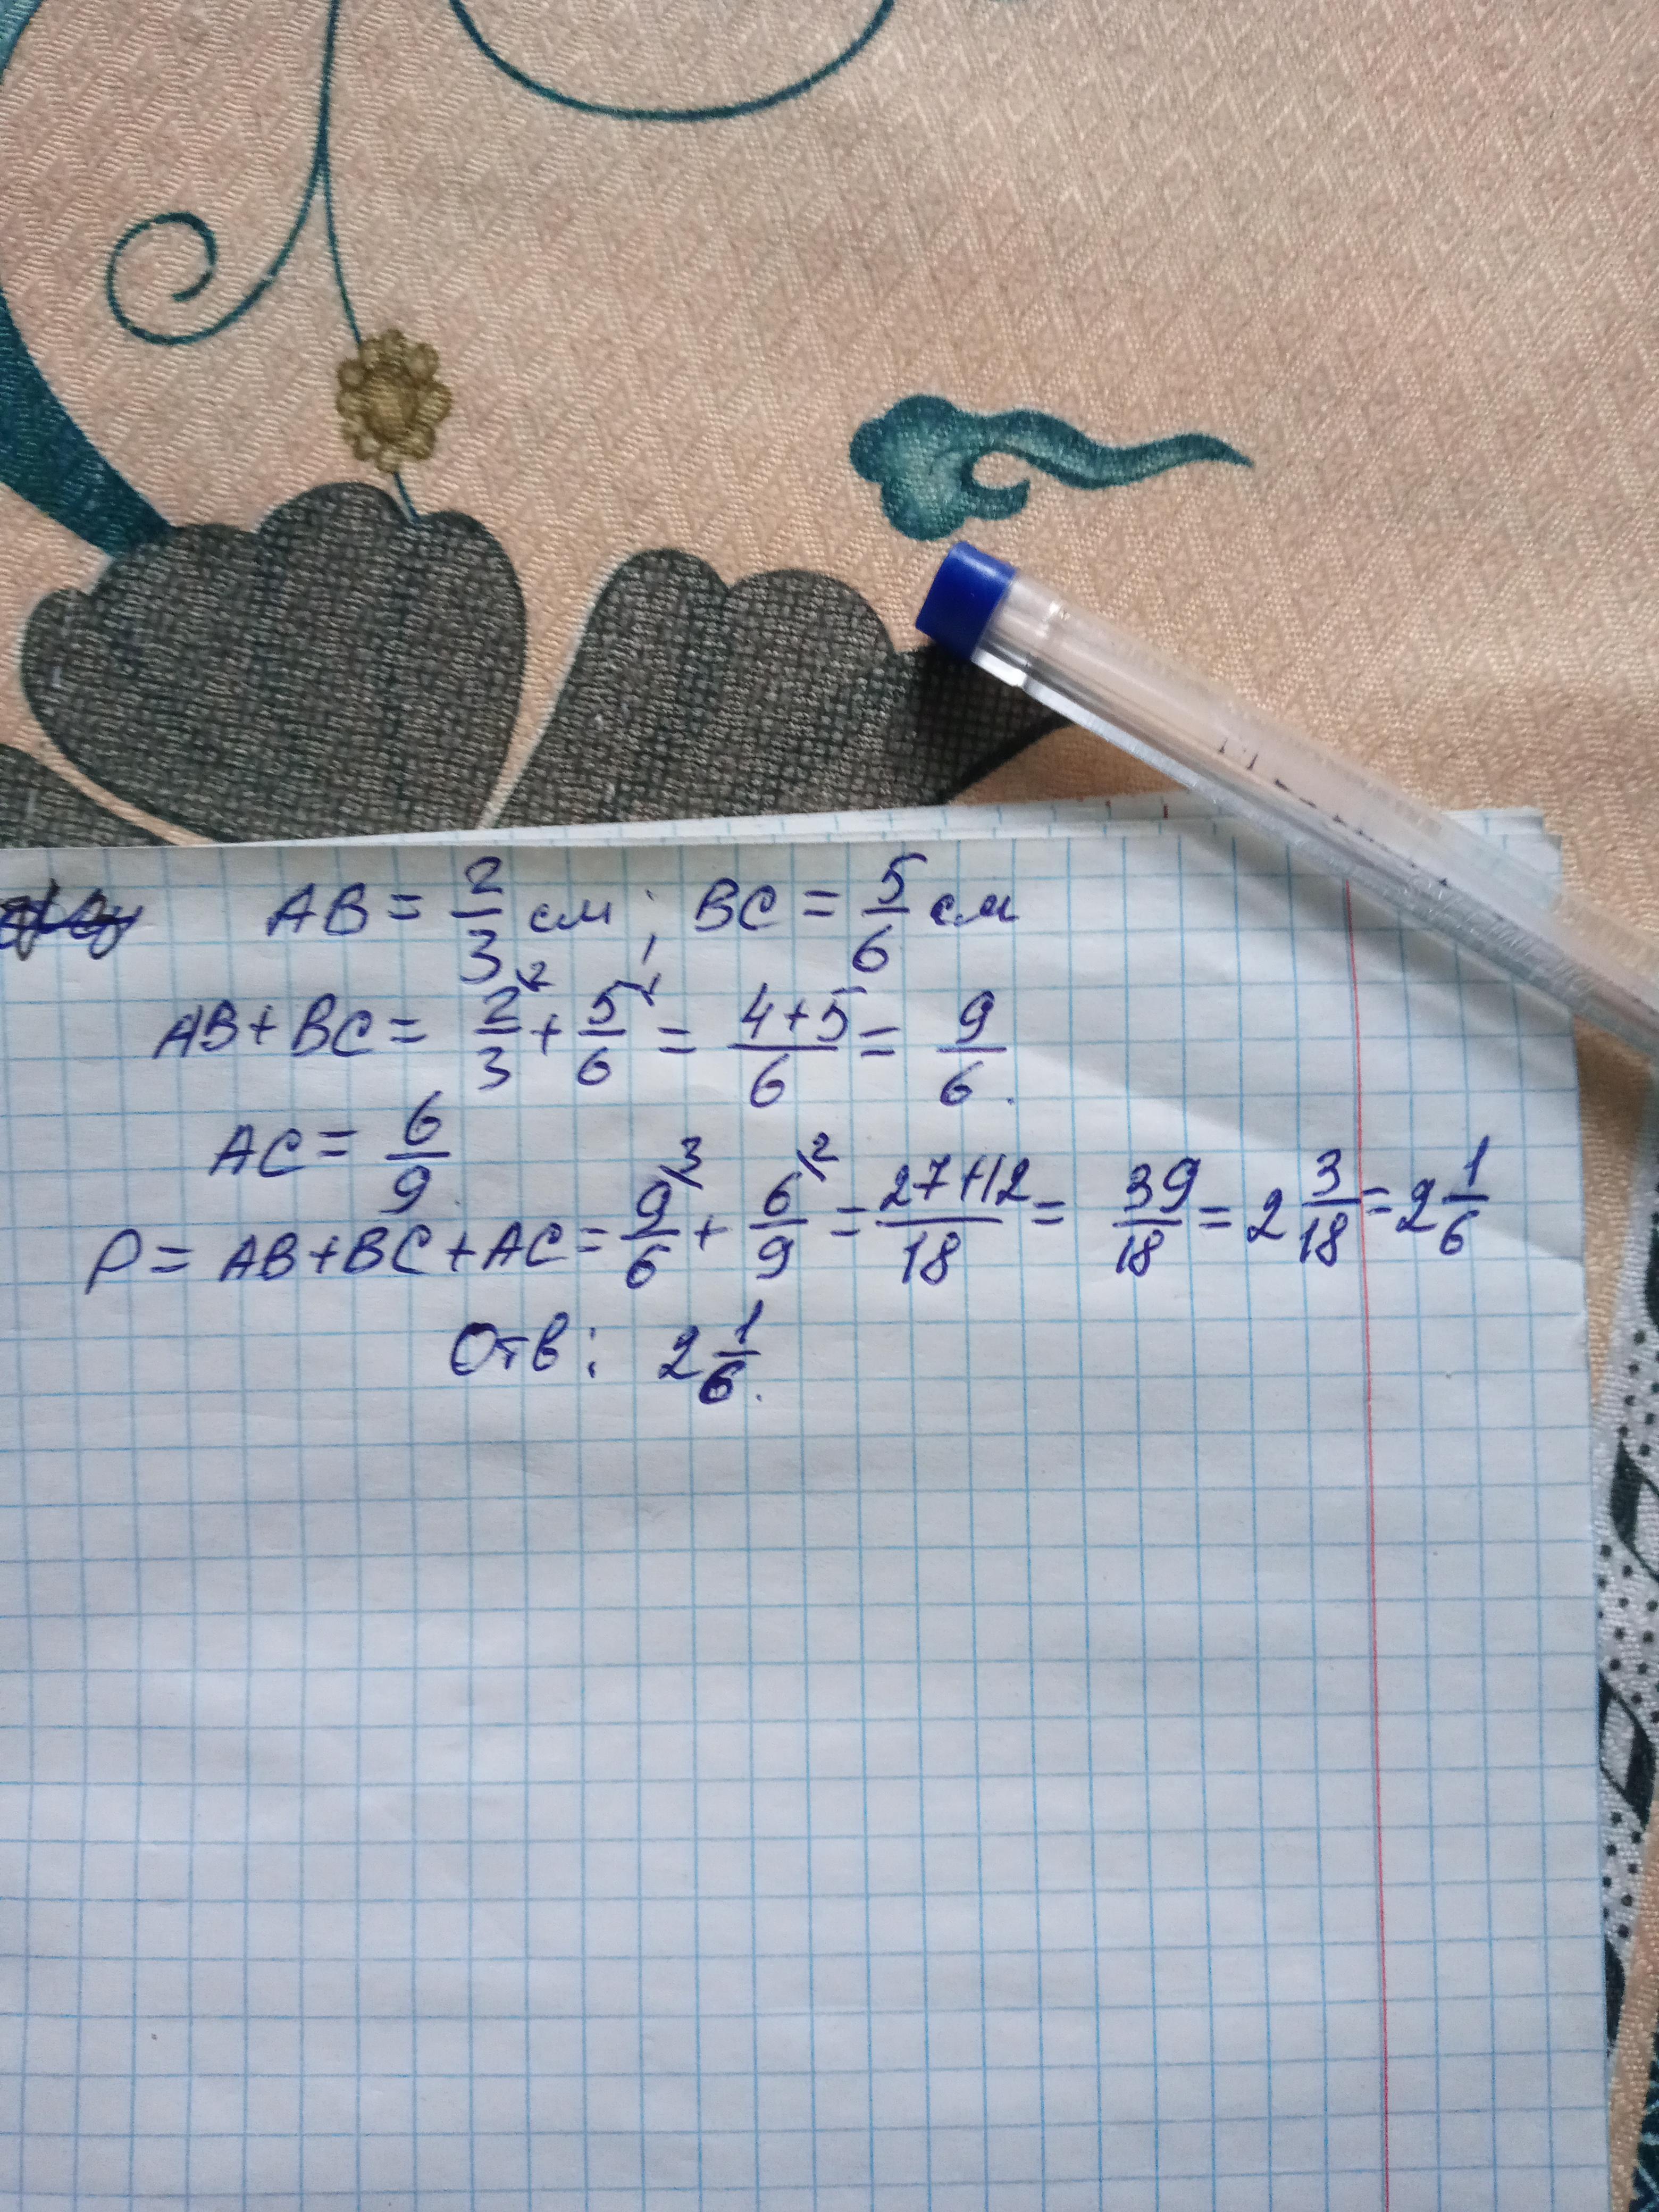 AB = 2/3 см; BC = 5/6 см
AB + BC = 2/3 \2 + 5/6 \1 = 4+5/6 = 9/6.
AC = 6/9.
P = AB + BC + AC = 9/6 \3 + 6/9 \2 = 27+12/18 = 39/18 = 2 3/18 = 2 1/6
Отв: 2 1/6.